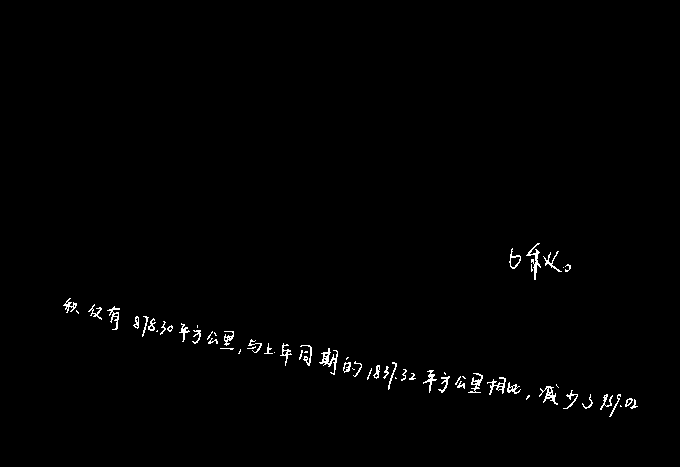 6秋。
积仅有878.30平方公里,与上年同期的1837.32平方公里相比,减少了959.02